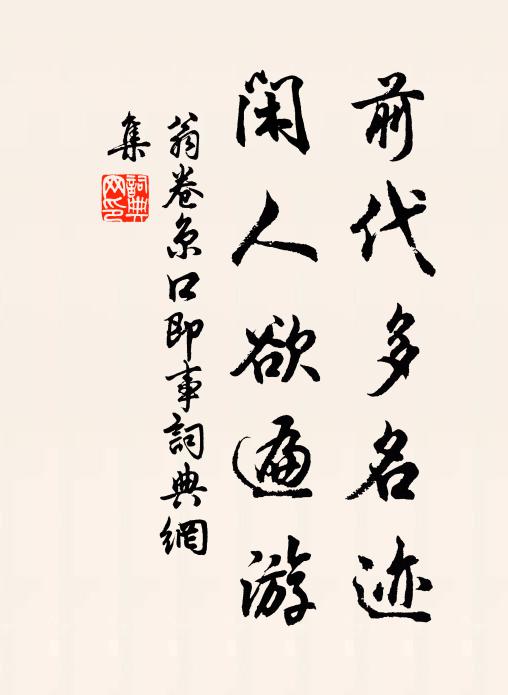 前代多名迹
闲人欲遍游
翁卷京口即事詞典網
集
詞典
网印